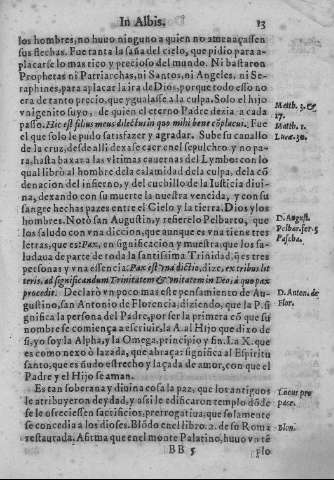 In Albis. 13
los hombres, no huuo ninguno a quien no amenaçassen
sus flechas. Fue tanta la saña del cielo, que pidio para a-
placarse lo mas rico y precioso del mundo. Ni bastaron
Prophetas ni Patriarchas, ni Santos, ni Angeles, ni Se-
raphines, para aplacar la ira de Dios, porque todo esso no
era de tanto precio, que ygualasse a la culpa. Solo el hijo
vnigenito suyo, de quien el eterno Padre dezia a cada
passo. Hic est filius meus dilectus in quo mihi bene cõplacui. Fue
el que solo le pudo satisfazer y agradar. Sube su cauallo
de la cruz, desde alli dexase caer en el sepulchro, y no pa-
ra, hasta baxar a las vltimas cauernas del Lymbo: con lo
qual libro al hombre de la calamidad de la culpa, de la cõ
denacion del infierno, y del cuchillo de la Iusticia diui-
na, dexando con su muerte la nuestra vencida, y con su
sangre hechas pazes entre el Cielo y la tierra, Dios y los
hombres. Notò san Augustin, y refierelo Pelbarto, que
los saludo con vna diccion, que aunque es vna tiene tres
letras, que es: Pax, en significacion y muestra, que los sa-
ludaua de parte de toda la santissima Trinidad, q̃ es tres
personas y vna essencia. Pax est vna dictio, dize, ex tribus lit
teris, ad significandum Trinitatem & vnitatem in Deo, à quo pax
procedit. Declarò vn poco mas este pensamiento de Au-
gustino, san Antonio de Florencia, diziendo, que la P. si
gnifica la persona del Padre, por ser la primera cõ que su
nombre se comiença a escriuir, la A. al Hijo que dixo de
si, yo soy la Alpha, y la Omega, principio y fin. La X. que
es como nexo ò lazada, que abraça: significa al Espiritu
santo, que es ñudo estrecho y laçada de amor, con que el
Padre y el Hijo se aman.
Es tan soberana y diuina cosa la paz, que los antiguos
le atribuyeron deydad, y assi le edificaron templo dõde
se le ofreciessen sacrificios, prerrogatiua, que solamente
se concedia a los dioses. Blõdo en el libro. 2. de su Roma
restaurada. Afirma que en el monte Palatino, huuo vn tẽ
BB 5 plo
Matth. 3. &
17.
Matth. 1.
Lucæ. 20.
D. August.
Pelbar. ser. 5
Pascha.
D. Anton. de
Flor.
Lucus pro
pace.
Blon.